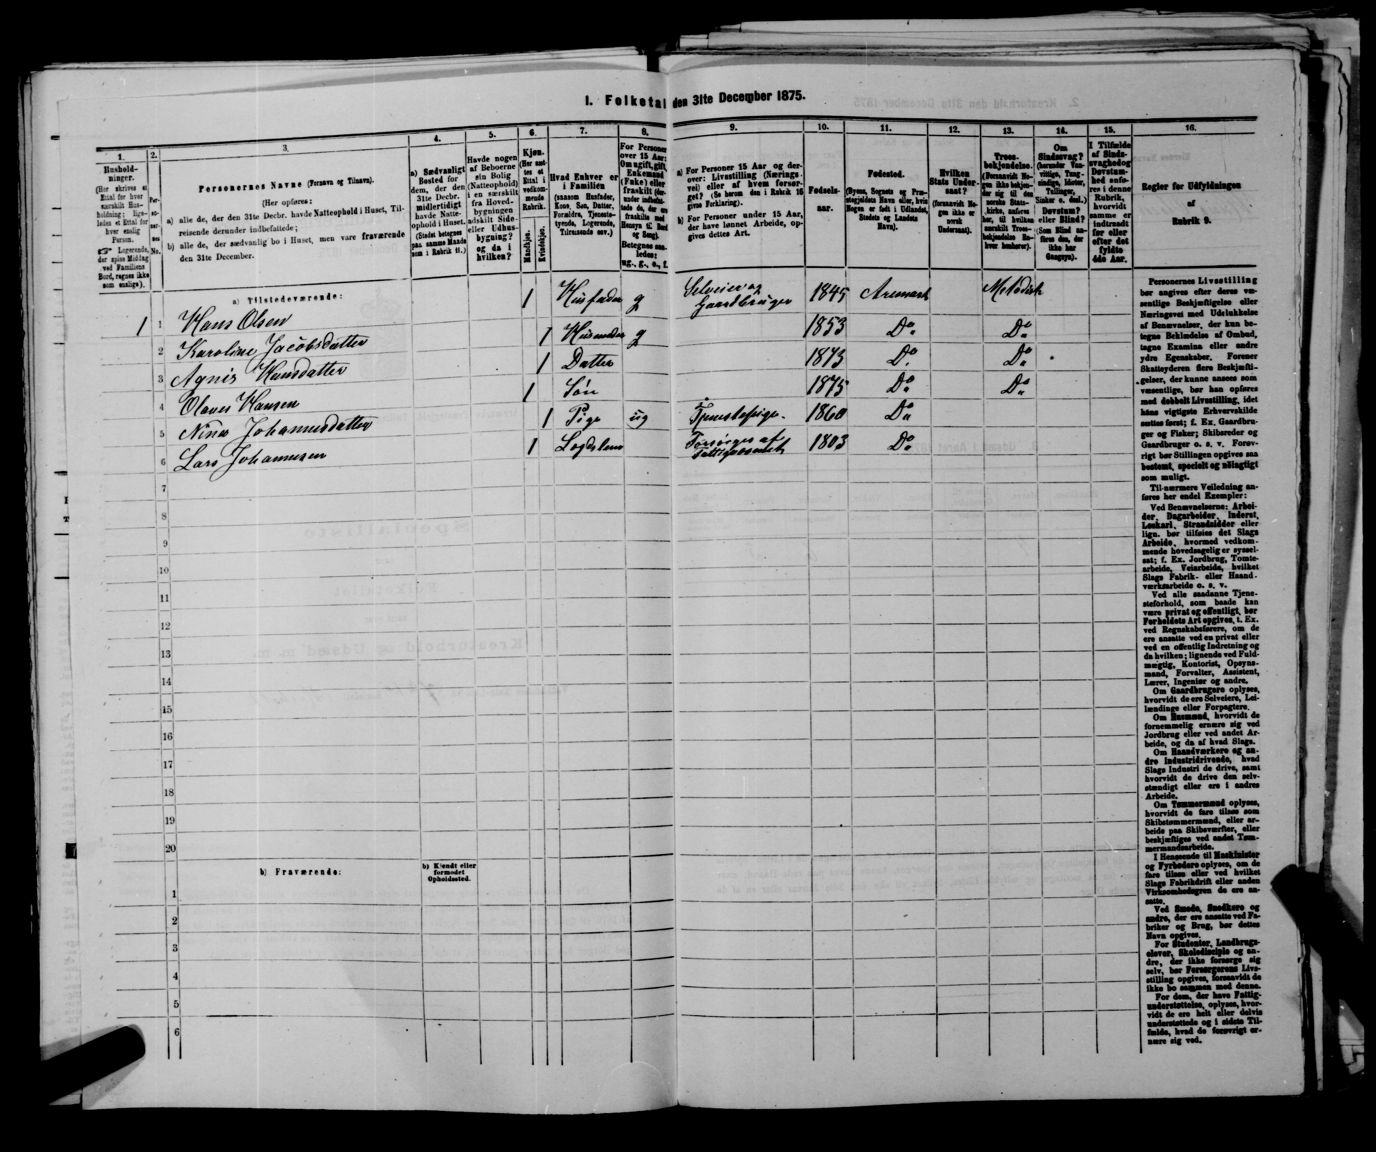 1. Folketal den 31te December 1875.
1.
Hushold-
ninger.
(Her skrives et
Ettal for hver
særskilt Hus-
holdning; lige-
ledes et Ettal for
hver enslig
Person.
Logerende,
der spise Middag
ved Familiens
Bord, regnes ikke
som enslige).
2.
Per-
so-
ner-
nes
No.
3.
Personernes Navne (Fornavn og Tilnavn).
(Her opføres:
a) alle de, der den 31te Decbr. havde Natteophold i Huset, Til-
reisende derunder indbefattede;
b) alle de, der sædvanlig bo i Huset, men vare fraværende
den 31te December.
4.
a) Sædvanligt
Bosted for
dem, der den
31te Decbr.
midlertidigt
havde Natte-
ophold i Huset.
(Stedet betegnes
paa samme Maade
som i Rubrik 11.)
5.
Havde nogen
af Beboerne
sin Bolig
(Natteophold)
i en særskilt
fra Hoved-
bygningen
adskilt Side-
eller Udhus-
bygning?
og da i
hvilken?
6.
Kjøn.
(Her sæt-
tes et
Ettal i
vedkom-
mende
Rubrik.
Mandkjøn.
Kvindekjøn.
7.
Hvad Enhver er
i Familien
(saasom Husfader,
Kone, Søn, Datter,
Forældre, Tjeneste-
tyende, Logerende,
Tilreisende osv.)
8.
For Personer
over 15 Aar:
Om ugift, gift,
Enkemand
(Enke) eller
fraskilt
Betegnes saa-
ledes:
ug., g., e., f.
9.
a) For Personer 15 Aar og der-
over: Livsstilling (Nærings-
vei) eller af hvem forsør-
get? (Se herom den i Rubrik 16
givne Forklaring).
b) For Personer under 15 Aar,
der have lønnet Arbeide, op-
gives dettes Art.
10.
Fødsels-
aar.
11.
Fødested.
(Byens, Sognets og Præ-
stegjeldets Navn eller, hvis
Nogen er født i Udlandet,
Stedets og Landets
Navn).
12.
Hvilken
Stats Under-
saat?
(forsaavidt No-
gen ikke er
norsk
Undersaat).
13.
Troes-
bekjendelse.
(Forsaavidt No-
gen ikke bekjen-
der sig til den
norske Stats-
kirke, anføres
her, til hvilken
særskilt Troes-
bekjendelse En-
hver henhører).
14.
Om
Sindssvag?
(herunder Van-
vittige, Tung-
sindige, Idioter,
Tullinger,
Sinker o. desl.)
Døvstum?
eller Blind?
(Som Blind an-
føres den, der
ikke har
Gangsyn).
15.
I Tilfælde
af Sinds-
svaghed og
Døvstum-
hed anfø-
res i denne
Rubrik,
hvorvidt
samme er
indtraadt
før eller
efter det
fyldte
4de Aar.
16.
Regler for Udfyldningen
af
Rubrik 9.
a) Tilstedeværende:
1 1 Hans Olsen 1 Husfader g Selveier og Gaardbruger 1845 Aremark Metodist
2 Karoline Jacobsdatter 1 Husmoder g 1853 Do Do
3 Agnis Hansdatter 1 Datter 1873 Do Do
4 Olaves Hansen 1 Søn 1875 Do Do
5 Nina Johannesdatter 1 Pige ug Tjenestepige. 1860 Do
6 Lars Johannesen 1 Logdslem Forsørges af Fattigvæsenet 1803 Do
7
8
9
10
11
12
13
14
15
16
17
18
19
20
b) Fraværende:
b) Kjendt eller
formodet
Opholdssted.
1
2
3
4
5
6
Personernes Livsstilling
bør angives efter deres væ-
sentlige Beskjæftigelse eller
Næringsvei med Udelukkelse
af Benævnelser, der kun be-
tegne Beklædelse af Ombud,
tagne Examina eller andre
ydre Egenskaber. Forener
Skatteyderen flere Beskjæfti-
gelser, der kunne ansees som
væsentlige, bør han opføres
med dobbelt Livsstilling, idet
hans vigtigste Erhvervskilde
sættes først; f. Ex. Gaardbru-
ger og Fisker; Skibsreder og
Gaardbruger o. s. v. Forøv-
rigt bør Stillingen opgives saa
bestemt, specielt og nøiagtigt
som muligt.
Til nærmere Veiledning an-
føres her endel Exempler:
Ved Benævnelserne: Arbei-
der, Dagarbeider, Inderst,
Løskarl, Strandsidder eller
lign. bør tilføies det Slags
Arbeide, hvormed vedkom-
mende hovedsagelig er syssel-
sat; f. Ex. Jordbrug, Tomte-
arbeide, Veiarbeide, hvilket
Slags Fabrik- eller Haand-
værksarbeide o. s. v.
Ved alle saadanne Tjene-
steforhold, som baade kan
være privat og offentligt, bør
Forholdets Art opgives, t. Ex.
ved Regnskabsførere, om de
ere ansatte ved en privat eller
ved en offentlig Indretning og
da hvilken; lignende ved Fuld-
mægtig, Kontorist, Opsyns-
mand, Forvalter, Assistent,
Lærer, Ingeniør og andre.
Om Gaardbrugere oplyses,
hvorvidt de ere Selveiere, Lei-
lændinge eller Forpagtere.
Om Husmænd, hvorvidt de
fornemmelig ernære sig ved
Jordbrug eller ved andet Ar-
beide, og da af hvad Slags.
Om Haandværkere og an-
dre Industridrivende, hvad
Slags Industri de drive, samt
hvorvidt de drive den selv-
stændigt eller ere i andres
Arbeide.
Om Tømmermænd oplyses,
hvorvidt de fare tilsøs som
Skibstømmermænd, eller ar-
beide paa Skibsværfter, eller
beskjæftiges ved andet Tøm-
mermandsarbeide.
I Henseende til Maskinister
og Fyrbødere oplyses, om de
fare tilsøs eller ved hvilket
Slags Fabrikdrift eller anden
Virksomhedsgren de ere an-
satte.
Ved Smede, Snedkere og
andre, der ere ansatte ved Fa-
briker og Brug, bør dettes
Navn opgives.
For Studenter, Landbrugs-
elever, Skoledisciple og an-
dre, der ikke forsørge sig
selv, bør Forsørgerens Livs-
stilling opgives, forsaavidt de
ikke bo sammen med denne.
For dem, der have Fattig-
understøttelse, oplyses, hvor-
vidt de ere helt eller delvis
understøttede og i sidste Til-
fælde, hvad de forøvrigt er-
nære sig ved.